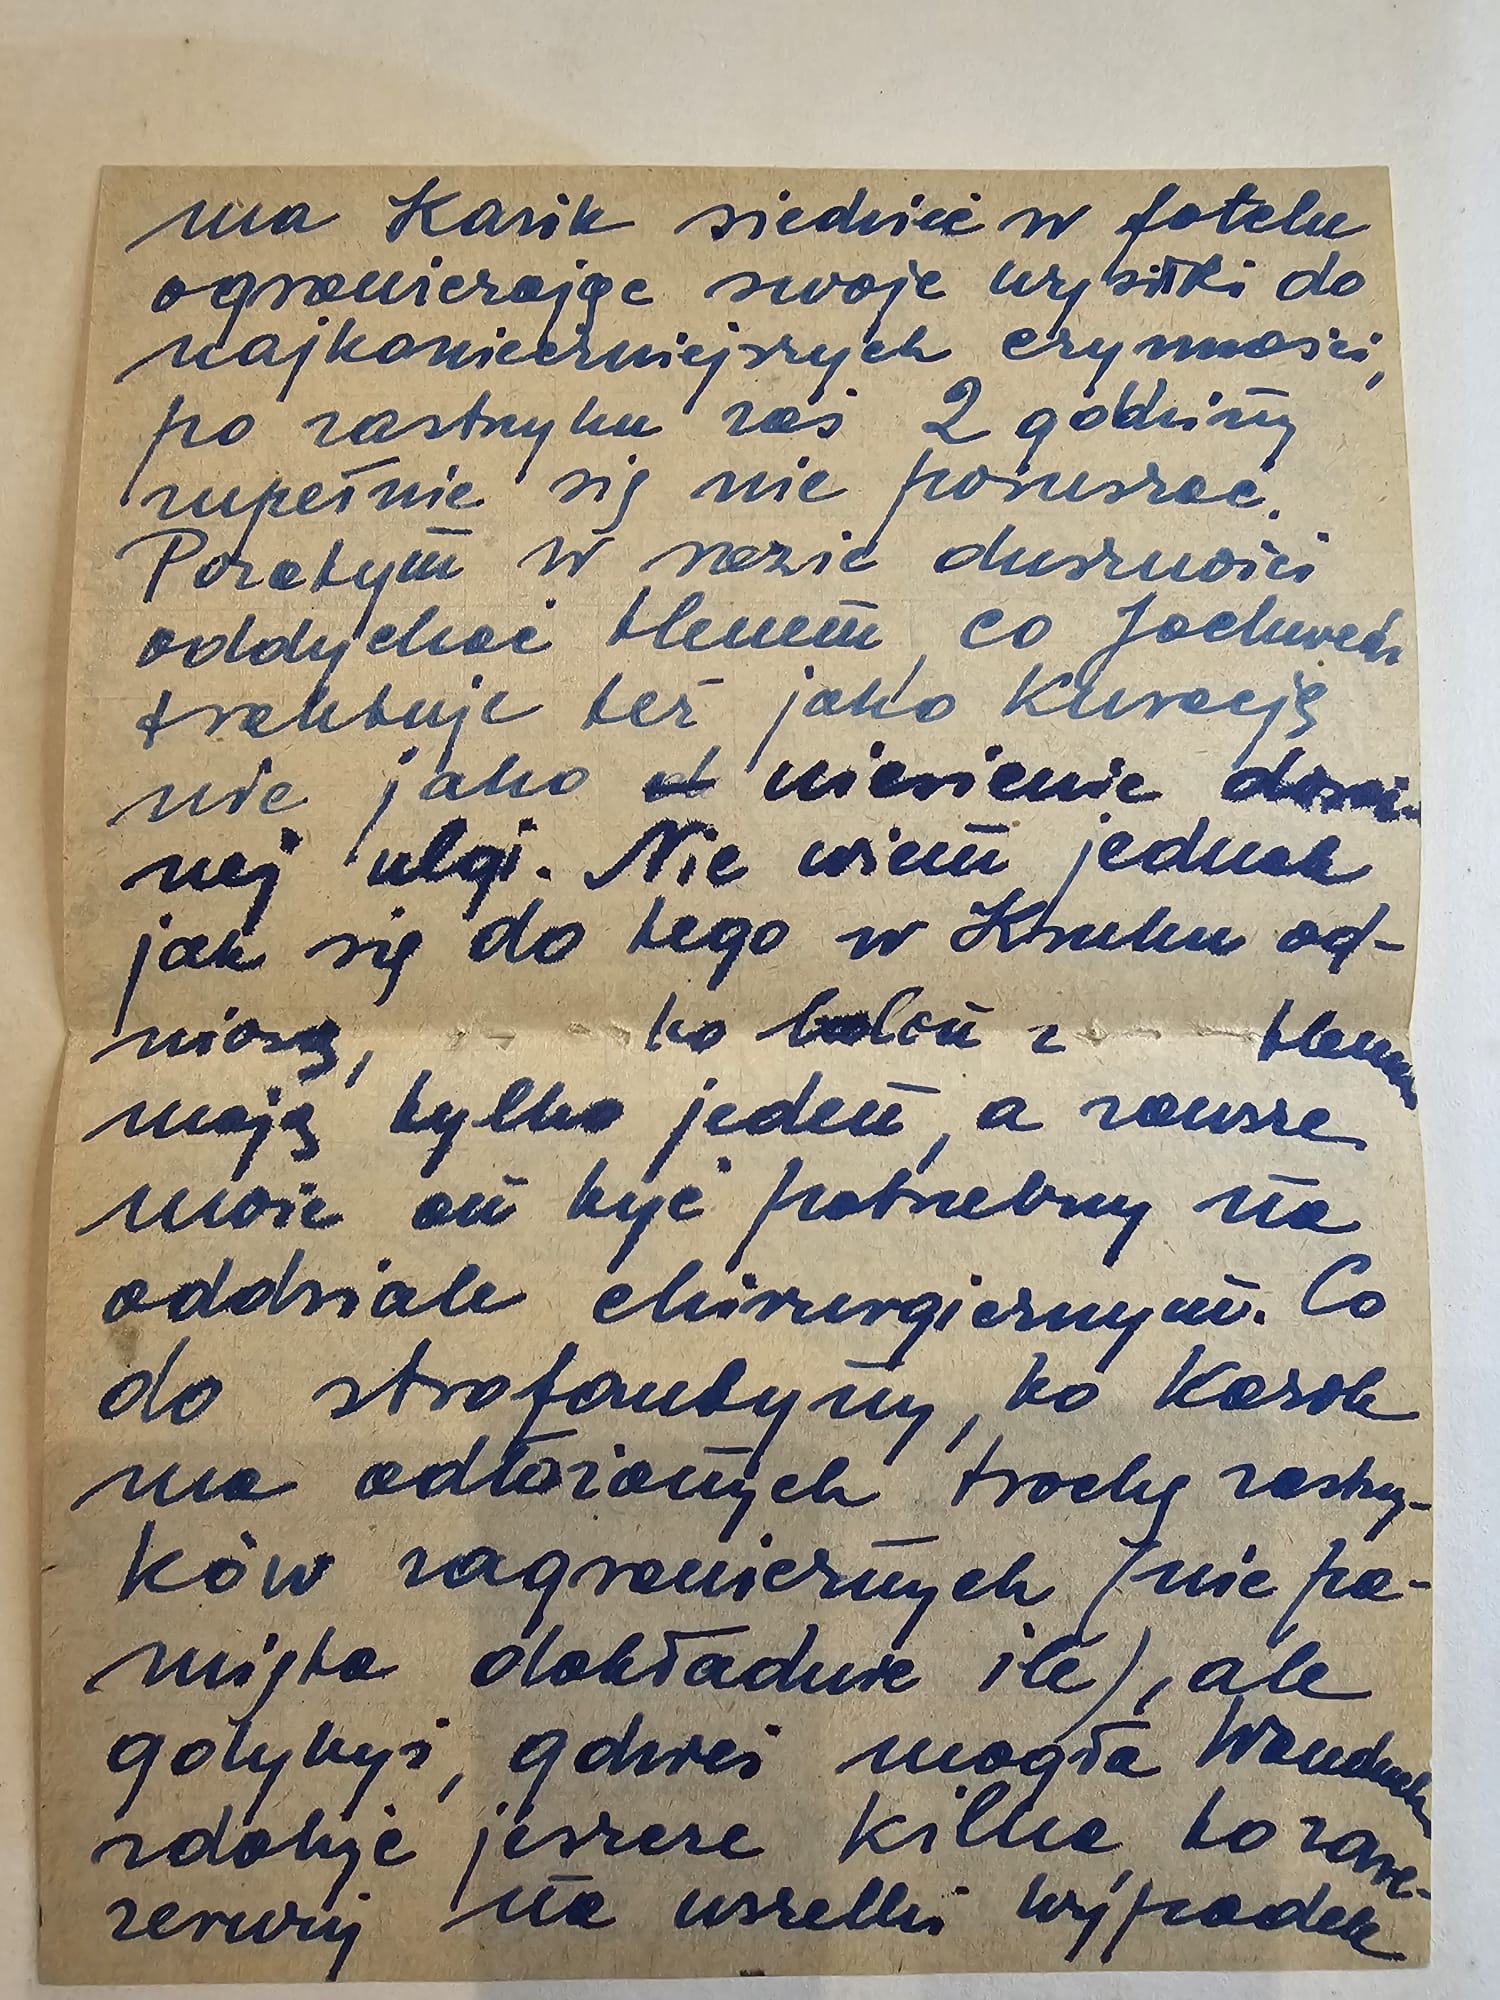 ma Kazik siedzieć w fotelu
ograniczając swoje wysiłki do
najkonieczniejszych czynności,
po zastrzyku zaś 2 godziny
zupełnie się nie poruszać.
Pozatym w razie duszności
oddychać tlenem, co Jochweds
traktuje też jako kurację
nie jako niesienie doraź-
nej ulgi. Nie wiem jednak
jak się do tego w Kruku od-
niosą, bo balon z tlenem
mają tylko jeden, a zawsze
może on być potrzebny na
oddziale chirurgicznym. Co
do strofantyny, to Kazik
ma odłożonych trochę zastrzy-
ków zagranicznych (nie pa-
mięta dokładnie ile), ale
gdybyś, gdzieś mogła Wandeczko
zdobyć jeszcze kilka, to zare-
zerwuj na wszelki wypadek